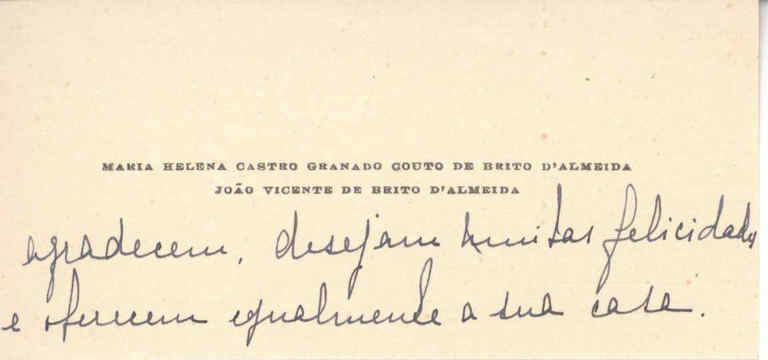 MARIA HELENA CASTRO GRANADO COUTO DE BRITO D'ALMEIDA
JOÃO VICENTE DE BRITO D'ALMEIDA
agradecem, desejam muitas felicidades
e oferecem egualmente a sua casa.